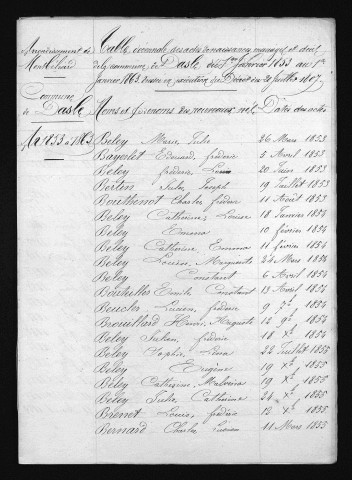 Arrondissement de Montbéliard
Commune de Dasle
Nᵃ 1853 à 1863
Table décennale des actes de naissances, mariages et décès
de la commune de Dasle du 1er Janvier 1853 au 1er
Janvier 1863 dressée en exécution du Décret du 20 Juillet 1807.
Noms et prénoms des nouveaux nés Dates des actes
Beley Marie Julie 26 Mars 1853
Bayelet Edouard, frédéric 5 Avril 1853
Beley frédéric, Louis 20 Juin 1853
Bertin Jules Joseph 19 Juillet 1853
Bouthenot Charles frédéric 11 Août 1853
Beley Catherine, Louise 18 Janvier 1854
Beley Emma 10 février 1854
Beley Catherine Emma 11 février 1854
Beley Louise, Marguerite 24 Mars 1854
Beley Constant 6 Avril 1854
Bouteiller Emile Constant 13 Avril 1854
Beucler Lucien, frédéric 9 9bre 1854
Brouillard Henri, Auguste 12 9bre 1854
Beley Julien, frédéric 18 Xbre 1854
Beley Sophie, Léna 22 Juillet 1855
Beley Eugène 19 Xbre 1855
Beley Catherine, Malvina 19 Xbre 1855
Beley Julie, Catherine 24 Xbre 1855
Brenet Louis, frédéric 12 Xbre 1855
Bernard Charles Lucien 11 Mars 1855